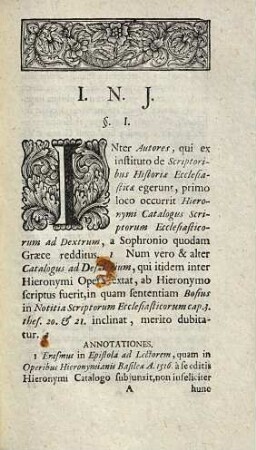 I. N. J.
§. I.
INter Autores, qui ex
instituto de Scriptori-
bus Historiæ Ecclesia-
sticæ egerunt, primo
loco occurrit Hiero-
nymi Catalogus Scri-
ptorum Ecclesiastico-
rum ad Dextrum, a Sophronio quodam
Græce redditus. 1 Num vero & alter
Catalogus ad Desiderium, qui itidem inter
Hieronymi Opera extat, ab Hieronymo
scriptus fuerit, in quam sententiam Bosius
in Notitia Scriptorum Ecclesiasticorum cap. 3.
thes. 20. & 21. inclinat, merito dubita-
tur.
ANNOTATIONES.
1 Erasmus in Epistola ad Lectorem, quam in
Operibus Hieronymianis Basileæ A. 1516. à se editis
Hieronymi Catalogo subjunxit, non infeliciter
A hunc